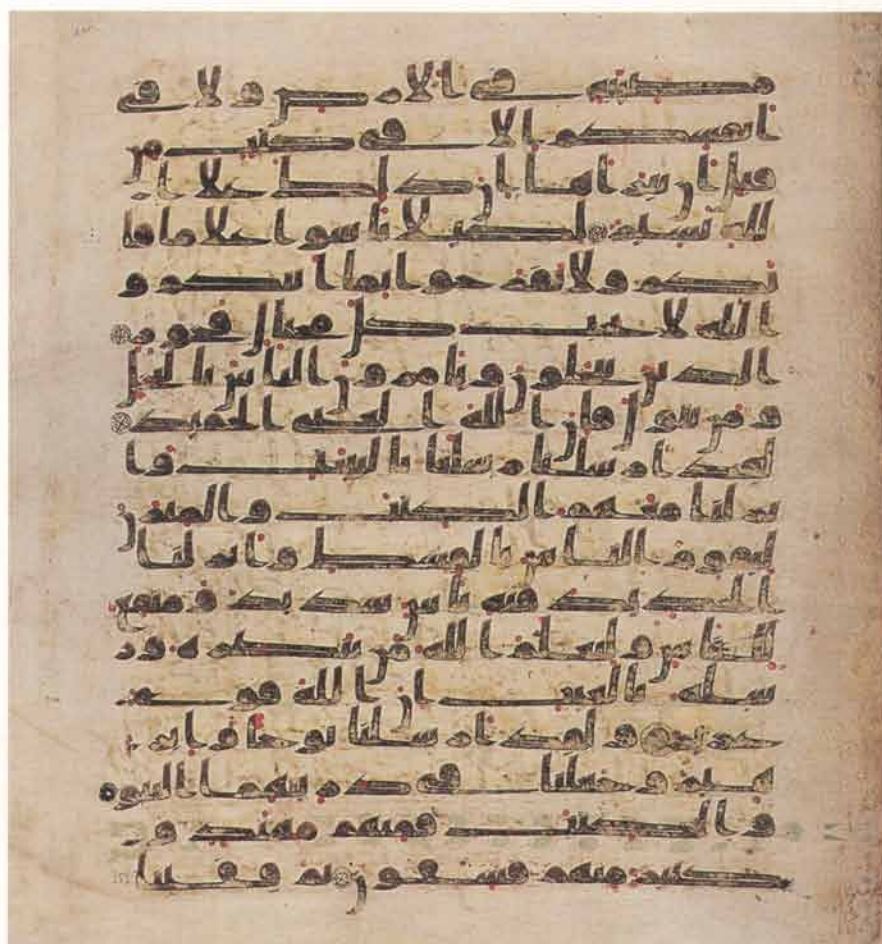 مصيبة في الارض ولا في
انفسكم الا في كتب من
قبل ان نبراها ان ذلك علا ا
لله يسير لكيلا تاسوا علا ما فا
تكم ولا تفرحوا بما اتيكم و
الله لا يحب كل مختال فخور
الذين يبخلون ويامرون الناس بالبخل
ومن يتول فان الله الغني الحميد
لقد ارسلنا رسلنا بالبينت وا
نزلنا معهم الكتب والميزن
ليقوم الناس بالقسط وانزلنا
الحديد فيه باس شديد ومنفع
للناس وليعلم الله من ينصره ور
سله بالغيب ان الله قوي
عزيز ولقد ارسلنا نوحا وابر
هيم وجعلنا في ذريتهما النبو
ة والكتب فمنهم مهتد و
كثير منهم فسقون ثم قفينا